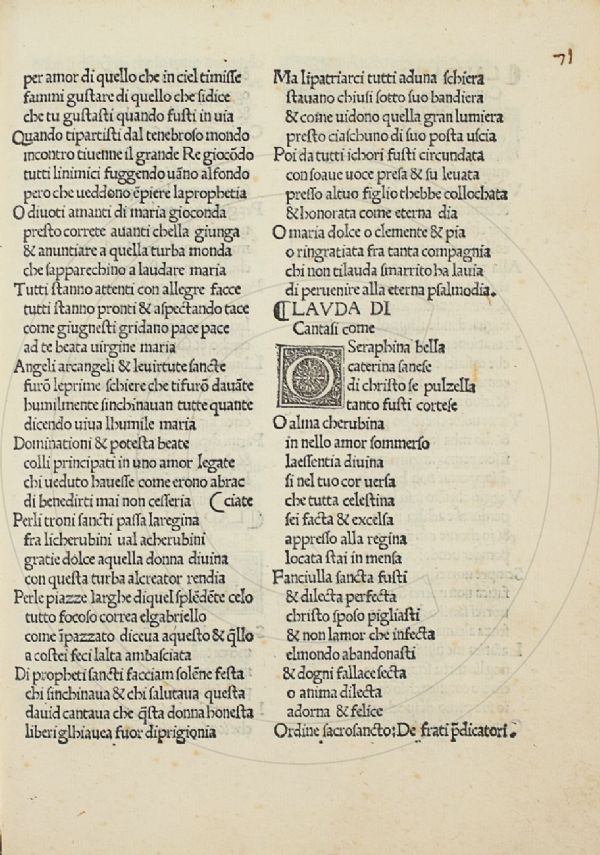 71
per amor di quello che in ciel timisse
fammi gustare di quello che sidice
che tu gustasti quando fusti in uia
Quando tipartisti dal tenebroso mondo
incontro tiuenne il grande Re giocōdo
tutti linimici fuggendo uāno alfondo
pero che ueddono ēpiere laprophetia
O diuoti amanti di maria gioconda
presto correte auanti chella giunga
& anuntiare a quella turba monda
che sapparechino a laudare maria
Tutti stanno attenti con allegre facce
tutti stanno pronti & aspectando tace
come giugnesti gridano pace pace
ad te beata uirgine maria
Angeli arcangeli & leuirtute sancte
furō leprime schiere che tifurō dauāte
humilmente sinchinauan tutte quante
dicendo uiua lhumile maria
Dominationi & potesta beate
colli principati in uno amor legate
chi ueduto hauesse come erono abrac
di benedirti mai non cesseria (ciate
Perli troni sancti passa laregina
fra licherubini ual acherubini
gratie dolce aquella donna diuina
con questa turba alcreator rendia
Perle piazze larghe di quel splēdēte celo
tutto focoso correa elgabriello
come īpazzato diceua aquesto & q̄llo
a costei feci lalta ambasciata
Di propheti sancti facciam solēne festa
chi sinchinaua & chi salutaua questa
dauid cantaua che q̄sta donna honesta
liberi glhiauea fuor diprigionia
Ma lipatriarci tutti aduna schiera
stauano chiusi sotto suo bandiera
& come uidono quella gran lumiera
presto ciaschuno di suo posta uscia
Poi da tutti ichori fusti circundata
con soaue uoce presa & su leuata
presso altuo figlio thebbe collochata
& honorata come eterna dia
O maria dolce o clemente & pia
o ringratiata fra tanta compagnia
chi non tilauda smarrito ha lauia
di peruenire alla eterna psalmodia.
¶ LAVDA DI
Cantasi come
O Seraphina bella
caterina sanese
di christo se pulzella
tanto fusti cortese
O alma cherubina
in nello amor sommerso
laessentia diuina
si nel tuo cor uersa
che tutta celestina
sei facta & excelsa
appresso alla regina
locata stai in mensa
Fanciulla sancta fusti
& dilecta perfecta
christo sposo pigliasti
& non lamor che infecta
elmondo abandonasti
& dogni fallace secta
o anima dilecta
adorna & felice
Ordine sacrosancto; De frati p̄dicatori.